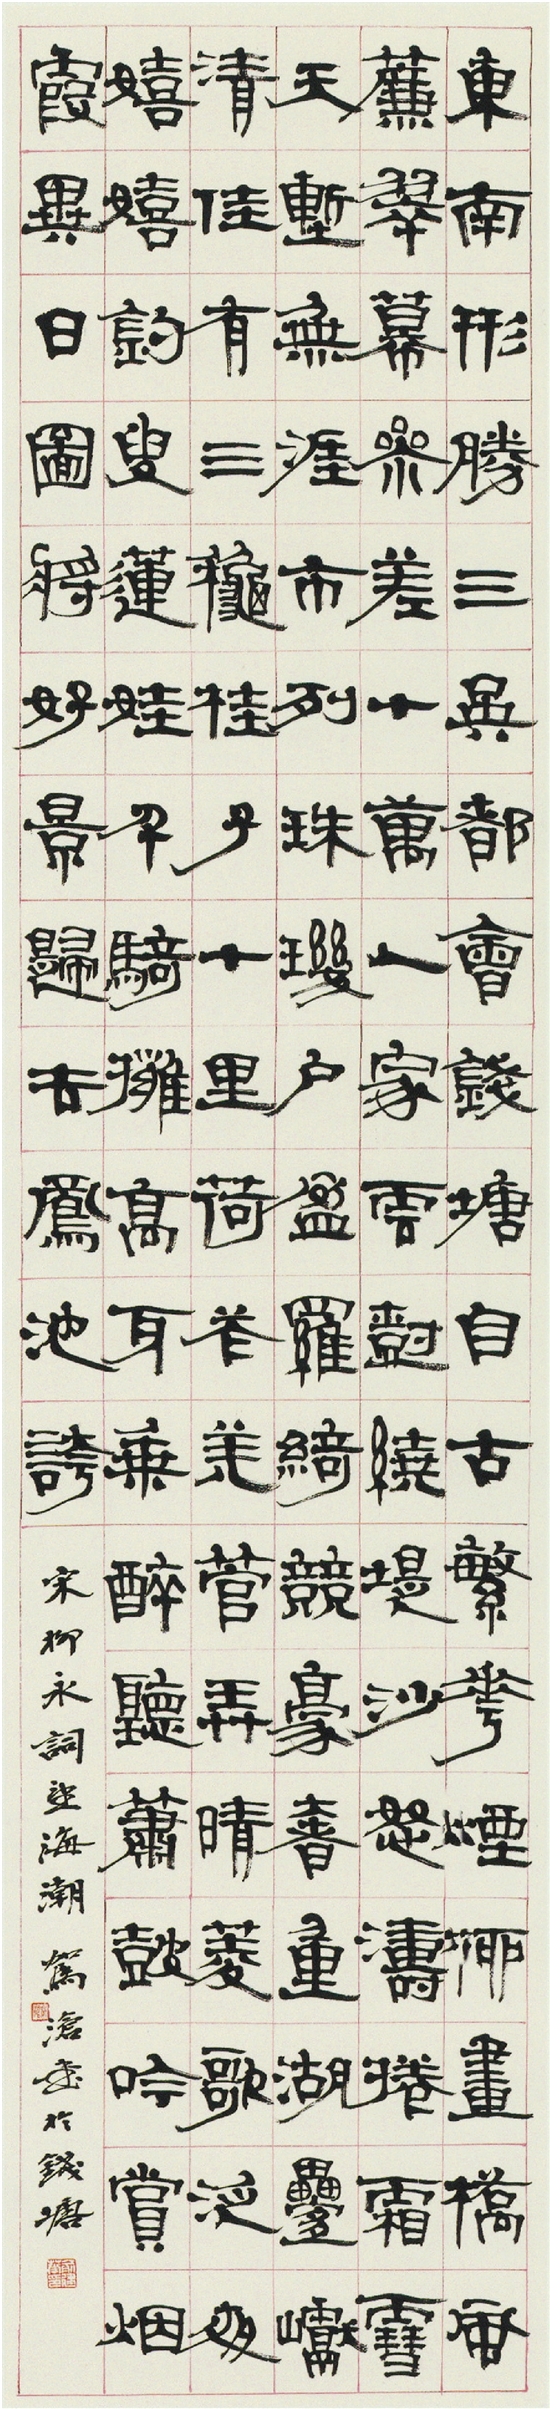 東南形勝三吳都會錢塘自古繁華煙柳畫橋風
簾翠幕參差十萬人家雲樹繞堤沙怒濤捲霜雪
天塹無涯市列珠璣戶盈羅綺競豪奢重湖疊巘
清佳有三龝桂子十里荷花羌管弄晴菱歌泛夜
嬉嬉釣叟蓮娃千騎擁高牙乘醉聽簫鼓吟賞烟
霞異日圖將好景歸去鳳池誇
宋柳永詞望海潮 滄書於錢塘